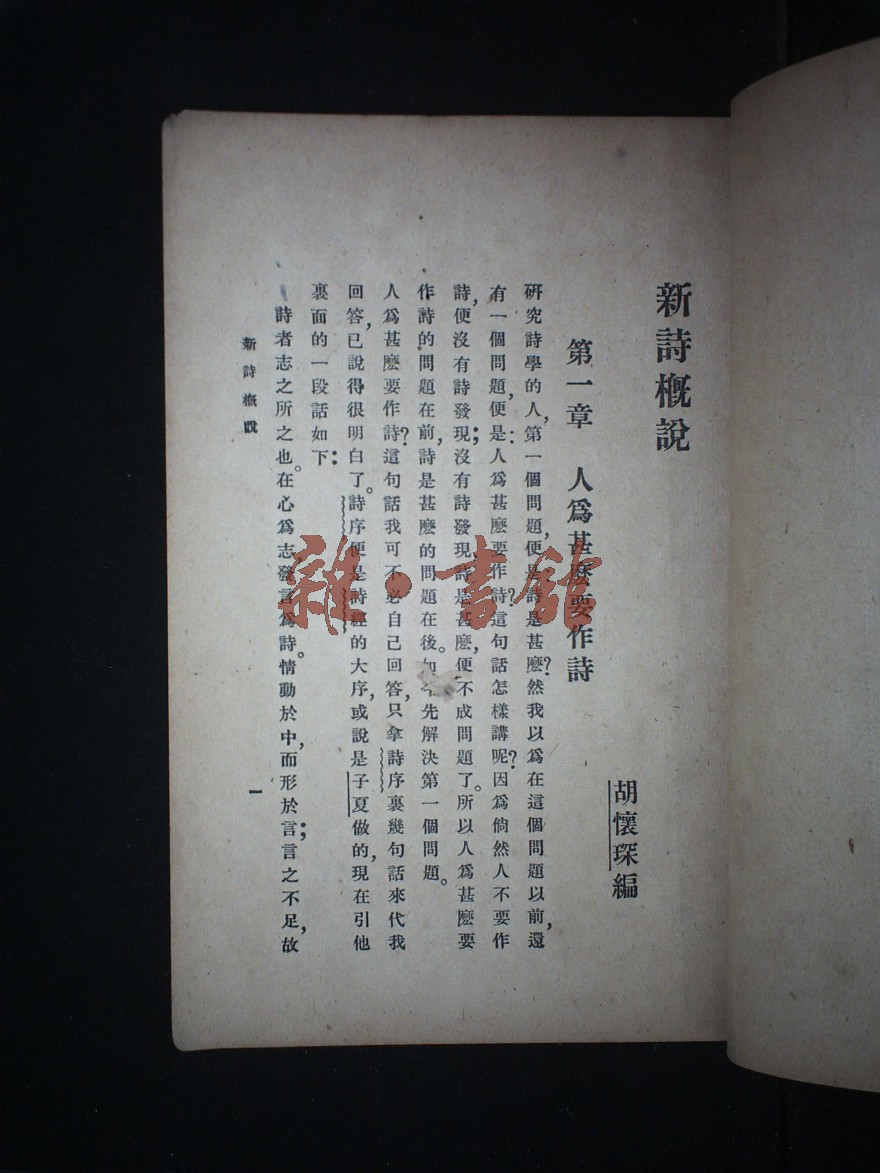 新詩概說
胡懷琛編
第一章　人爲甚麽要作詩
研究詩學的人，第一個問題，便是詩是甚麽？然我以爲在這個問題以前，還
有一個問題，便是：人爲甚麽要作詩？這句話怎樣講呢？因爲倘然人不要作
詩，便沒有詩發現；沒有詩發現，詩是甚麽，便不成問題了。所以人爲甚麽要
作詩的問題在前，詩是甚麽的問題在後。如今先解決第一個問題。
人爲甚麽要作詩？這句話我可不必自己回答，只拿詩序裏幾句話來代我
回答，已說得很明白了。詩序便是詩經的大序，或說是子夏做的，現在引他
裏面的一段話如下：
詩者志之所之也。在心爲志，發言爲詩。情動於中，而形於言；言之不足，故
新詩概說
一
雜·書館